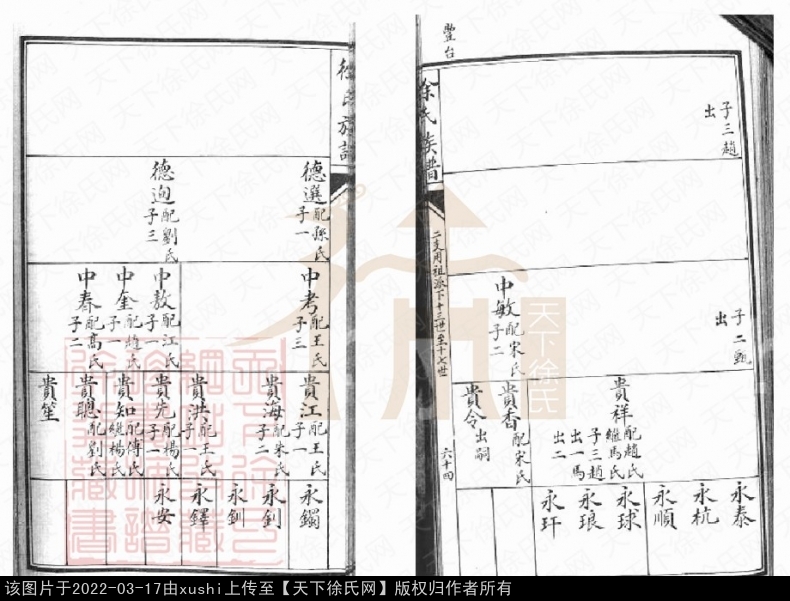 豐台
徐氏族譜
二支用祖派下十三世至十七世
六十四
子三趙
出
子二甄
出
中敏配宋氏
子二
貴祥配趙氏
繼馬氏
子三趙
出一馬
出二
貴香配宋氏
貴令出嗣
永泰
永杭
永順
永球
永琅
永玕
徐氏族譜
德選配孫氏
子一
德迿配劉氏
子三
中考配王氏
子三
中敖配江氏
子一
中奎配趙氏
子一
中春配高氏
子二
貴江配王氏
子一
貴海配朱氏
子二
貴洪配王氏
子一
貴先配楊氏
子一
貴知配傅氏
繼楊氏
貴聰配劉氏
貴笙
永鐲
永釗
永釧
永鐸
永安
天下徐氏
天下徐氏网
该图片于2022-03-17由xushi上传至【天下徐氏网】版权归作者所有